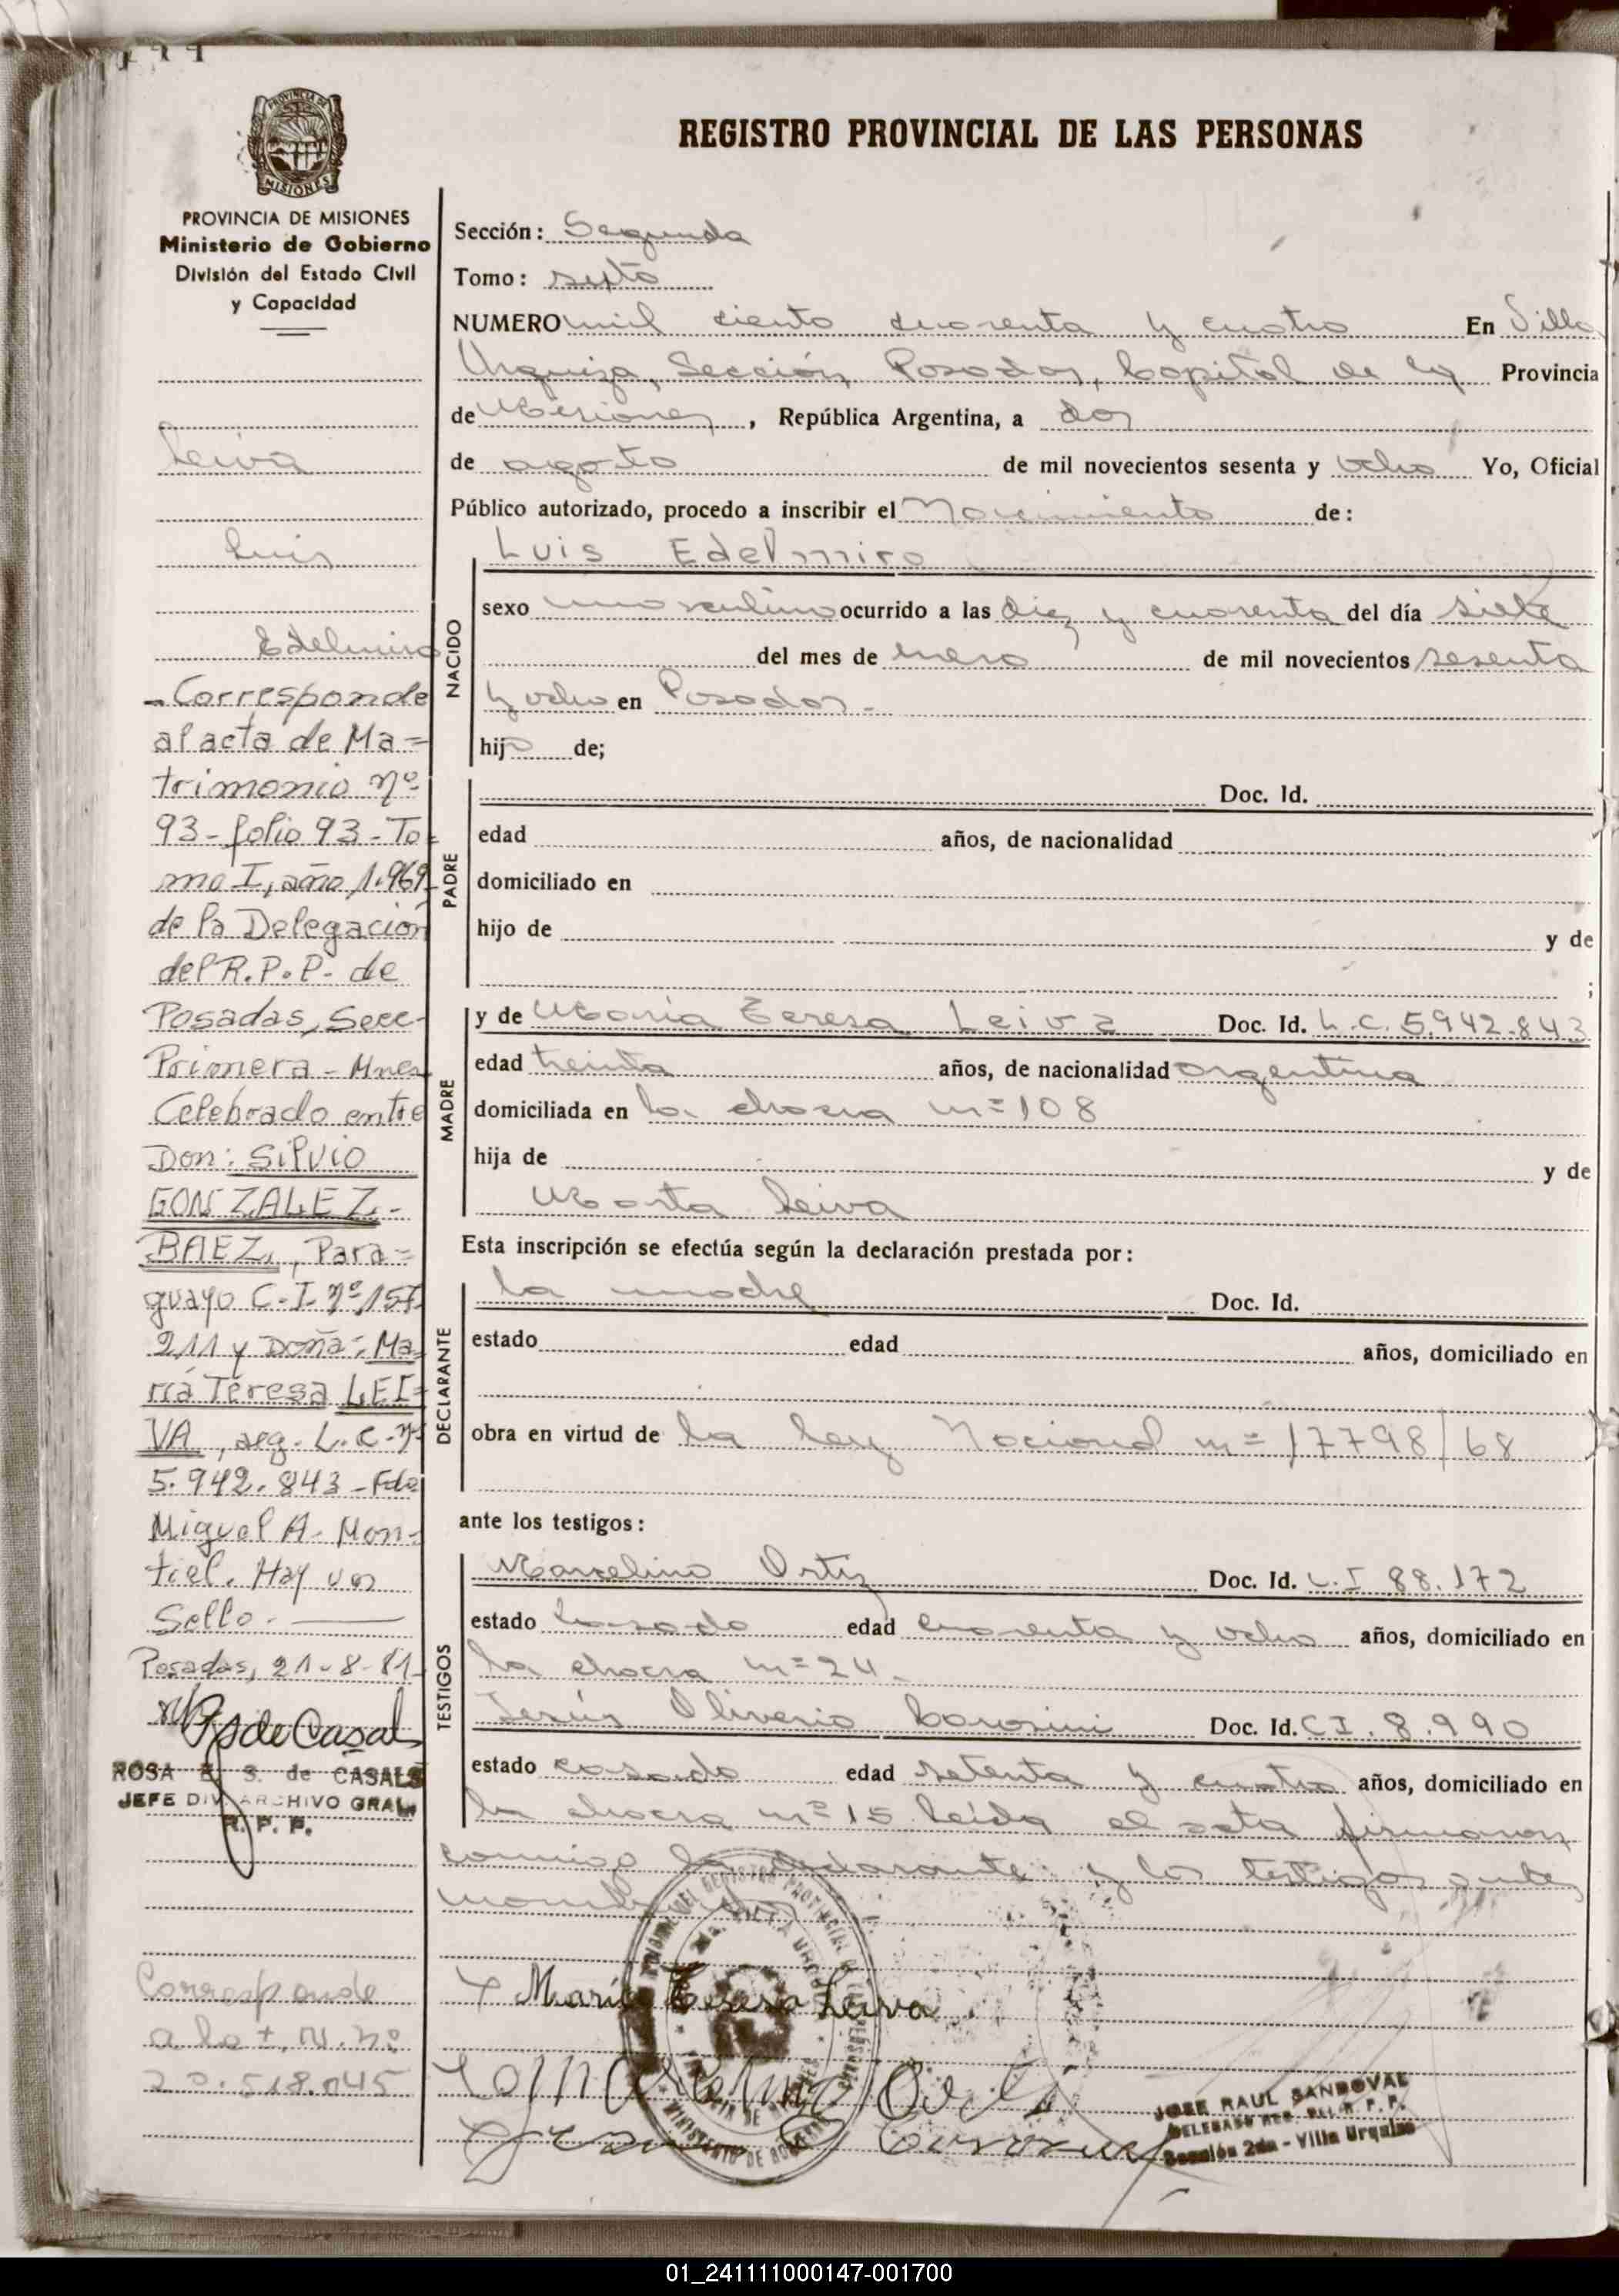 REGISTRO PROVINCIAL DE LAS PERSONAS
PROVINCIA DE MISIONES
Ministerio de Gobierno
División del Estado Civil
y Capacidad
Leiva
Luis
Edelmiro
- Corresponde
al acta de Ma=
trimonio nº
93 - folio 93 - To=
mo I, año 1.969
de la Delegación
del R.P.P. de
Posadas, Secc-
Primera - Mnes
Celebrado entre
Don: Silvio
GONZALEZ -
BAEZ, Para=
guayo C.I. nº 157.
211 y Doña: Ma=
ría Teresa LEI=
VA, arg. L.C. nº
5.942.843 - Fdo
Miguel A. Mon-
tiel. Hay un
Sello.
Posadas, 21-8-81-
ROSA E. S. de CASALS
JEFE DIV. ARCHIVO GRAL.
R. P. P.
Corresponde
a la
20.518.045
Sección: Segunda
Tomo: sexto
NUMERO mil ciento cuarenta y cuatro En Villa
Urquiza, Sección, Posadas, Capital de la Provincia
de Misiones, República Argentina, a dos
de agosto de mil novecientos sesenta y ocho Yo, Oficial
Público autorizado, procedo a inscribir el Nacimiento de:
NACIDO
Luis Edelmiro
sexo masculino ocurrido a las diez y cuarenta del día siete
del mes de enero de mil novecientos sesenta
y ocho en Posadas.-
hijo de;
PADRE
Doc. Id.
edad años, de nacionalidad
domiciliado en
hijo de y de
;
MADRE
y de María Teresa Leiva Doc. Id. L.C. 5.942.843
edad treinta años, de nacionalidad argentina
domiciliada en la chacra nº 108
hija de y de
Marta Leiva
Esta inscripción se efectúa según la declaración prestada por:
DECLARANTE
la madre Doc. Id.
estado edad años, domiciliado en
obra en virtud de la ley Nacional nº 17798/68
ante los testigos:
TESTIGOS
Marcelino Ortiz Doc. Id. C.I 88.172
estado casado edad cuarenta y ocho años, domiciliado en
la chacra nº 24
Jesús Oliverio Doc. Id. C I. 8.990
estado casado edad setenta y cuatro años, domiciliado en
la chacra nº 15 leída el acta firmaron
conmigo la declarante y los testigos antes
María Teresa Leiva
JOSE RAUL SANDOVAL
Sección 2da - Villa Urquiza
01_241111000147-001700